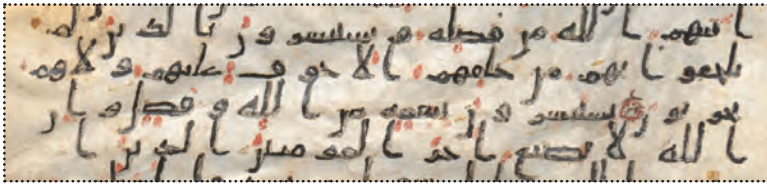 اتيهم الله من فضله ويستبشرون بالذين لم
يلحقوا بهم من خلفهم الا خوف عليهم ولا هم
يحزنون يستبشرون بنعمه من الله وفضل وان
الله لا يضيع اجر المومنين الذين ا